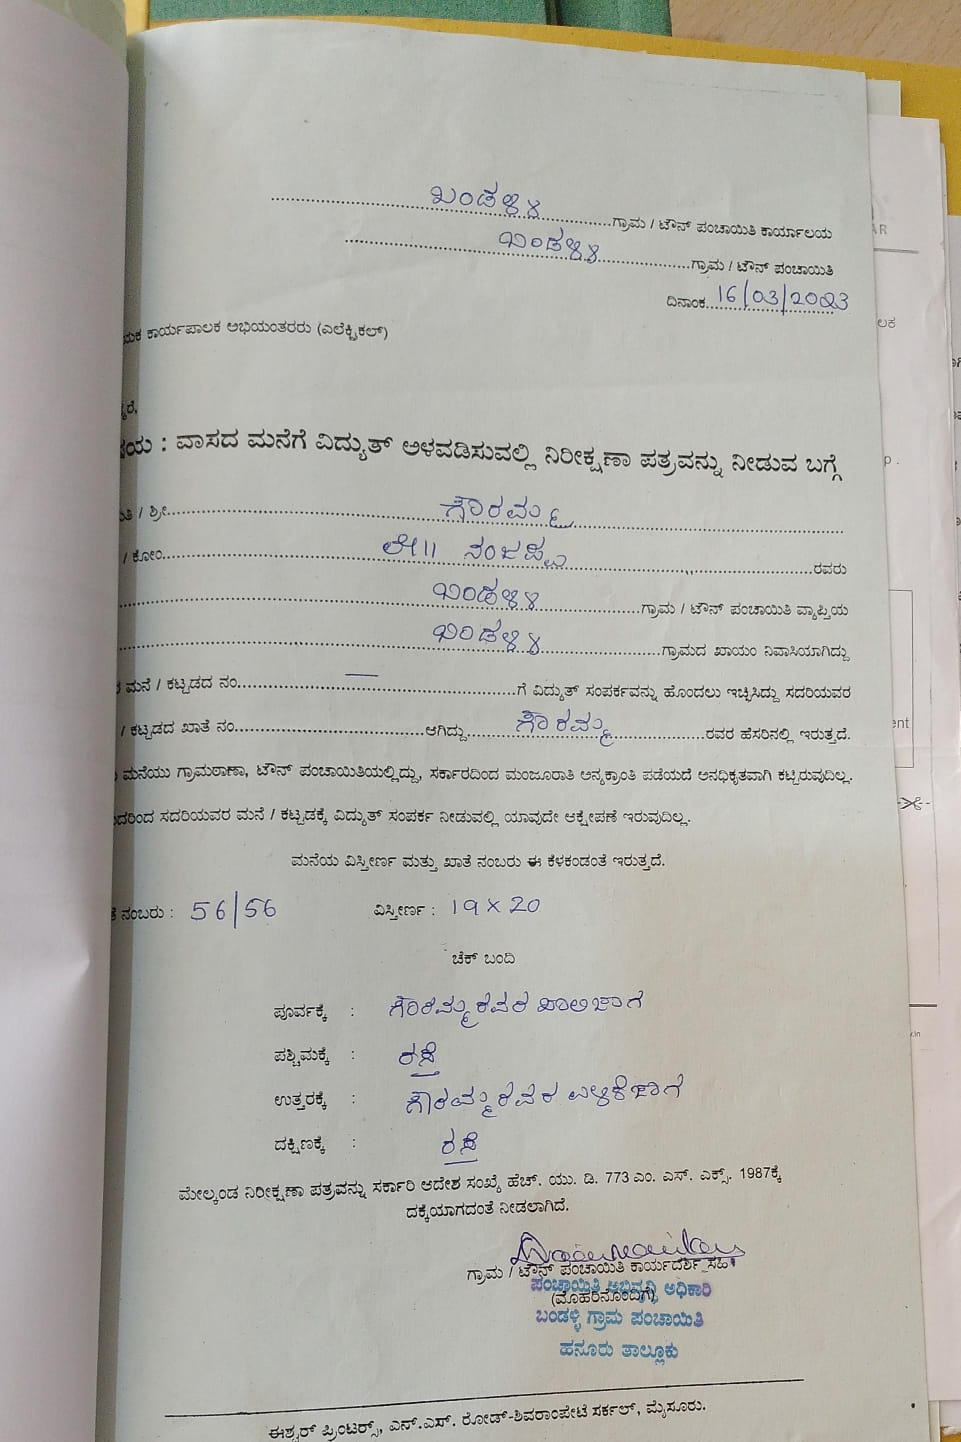 ಬಂಡಳ್ಳಿ ಗ್ರಾಮ / ಟೌನ್ ಪಂಚಾಯಿತಿ ಕಾರ್ಯಾಲಯ
ಬಂಡಳ್ಳಿ ಗ್ರಾಮ / ಟೌನ್ ಪಂಚಾಯಿತಿ
ದಿನಾಂಕ 16/03/2023
ಕಾರ್ಯಪಾಲಕ ಅಭಿಯಂತರರು (ಎಲೆಕ್ಟ್ರಿಕಲ್)
: ವಾಸದ ಮನೆಗೆ ವಿದ್ಯುತ್ ಅಳವಡಿಸುವಲ್ಲಿ ನಿರೀಕ್ಷಣಾ ಪತ್ರವನ್ನು ನೀಡುವ ಬಗ್ಗೆ
/ ಶ್ರೀ ಗೌರಮ್ಮ
/ ಕೋಂ ಲೇ|| ನಂಜಪ್ಪ ರವರು
ಬಂಡಳ್ಳಿ ಗ್ರಾಮ / ಟೌನ್ ಪಂಚಾಯಿತಿ ವ್ಯಾಪ್ತಿಯ
ಬಂಡಳ್ಳಿ ಗ್ರಾಮದ ಖಾಯಂ ನಿವಾಸಿಯಾಗಿದ್ದು
ಮನೆ / ಕಟ್ಟಡದ ನಂ. — ಗೆ ವಿದ್ಯುತ್ ಸಂಪರ್ಕವನ್ನು ಹೊಂದಲು ಇಚ್ಛಿಸಿದ್ದು ಸದರಿಯವರ
/ ಕಟ್ಟಡದ ಖಾತೆ ನಂ. ಆಗಿದ್ದು ಗೌರಮ್ಮ ರವರ ಹೆಸರಿನಲ್ಲಿ ಇರುತ್ತದೆ.
ಮನೆಯು ಗ್ರಾಮಠಾಣಾ, ಟೌನ್ ಪಂಚಾಯಿತಿಯಲ್ಲಿದ್ದು, ಸರ್ಕಾರದಿಂದ ಮಂಜೂರಾತಿ ಅನ್ಯಕ್ರಾಂತಿ ಪಡೆಯದೆ ಅನಧಿಕೃತವಾಗಿ ಕಟ್ಟಿರುವುದಿಲ್ಲ.
ಸದರಿಯವರ ಮನೆ / ಕಟ್ಟಡಕ್ಕೆ ವಿದ್ಯುತ್ ಸಂಪರ್ಕ ನೀಡುವಲ್ಲಿ ಯಾವುದೇ ಆಕ್ಷೇಪಣೆ ಇರುವುದಿಲ್ಲ.
ಮನೆಯ ವಿಸ್ತೀರ್ಣ ಮತ್ತು ಖಾತೆ ನಂಬರು ಈ ಕೆಳಕಂಡಂತೆ ಇರುತ್ತದೆ.
ನಂಬರು : 56/56 ವಿಸ್ತೀರ್ಣ : 19 x 20
ಚೆಕ್ ಬಂದಿ
ಪೂರ್ವಕ್ಕೆ : ಗೌರಮ್ಮರವರ ಖಾಲಿಜಾಗ
ಪಶ್ಚಿಮಕ್ಕೆ : ರಸ್ತೆ
ಉತ್ತರಕ್ಕೆ : ಗೌರಮ್ಮರವರ ಉಳಿಕೆಜಾಗ
ದಕ್ಷಿಣಕ್ಕೆ : ರಸ್ತೆ
ಮೇಲ್ಕಂಡ ನಿರೀಕ್ಷಣಾ ಪತ್ರವನ್ನು ಸರ್ಕಾರಿ ಆದೇಶ ಸಂಖ್ಯೆ ಹೆಚ್. ಯು. ಡಿ. 773 ಎಂ. ಎಸ್. ಎಕ್ಸ್. 1987ಕ್ಕೆ
ದಕ್ಕೆಯಾಗದಂತೆ ನೀಡಲಾಗಿದೆ.
ಗ್ರಾಮ / ಟೌನ್ ಪಂಚಾಯಿತಿ ಕಾರ್ಯದರ್ಶಿ ಸಹಿ
(ಮೊಹರಿನೊಂದಿಗೆ)
ಪಂಚಾಯಿತಿ ಅಭಿವೃದ್ಧಿ ಅಧಿಕಾರಿ
ಬಂಡಳ್ಳಿ ಗ್ರಾಮ ಪಂಚಾಯಿತಿ
ಹನೂರು ತಾಲ್ಲೂಕು
ಈಶ್ವರ್ ಪ್ರಿಂಟರ್ಸ್, ಎನ್.ಎಸ್. ರೋಡ್-ಶಿವರಾಂಪೇಟೆ ಸರ್ಕಲ್, ಮೈಸೂರು.